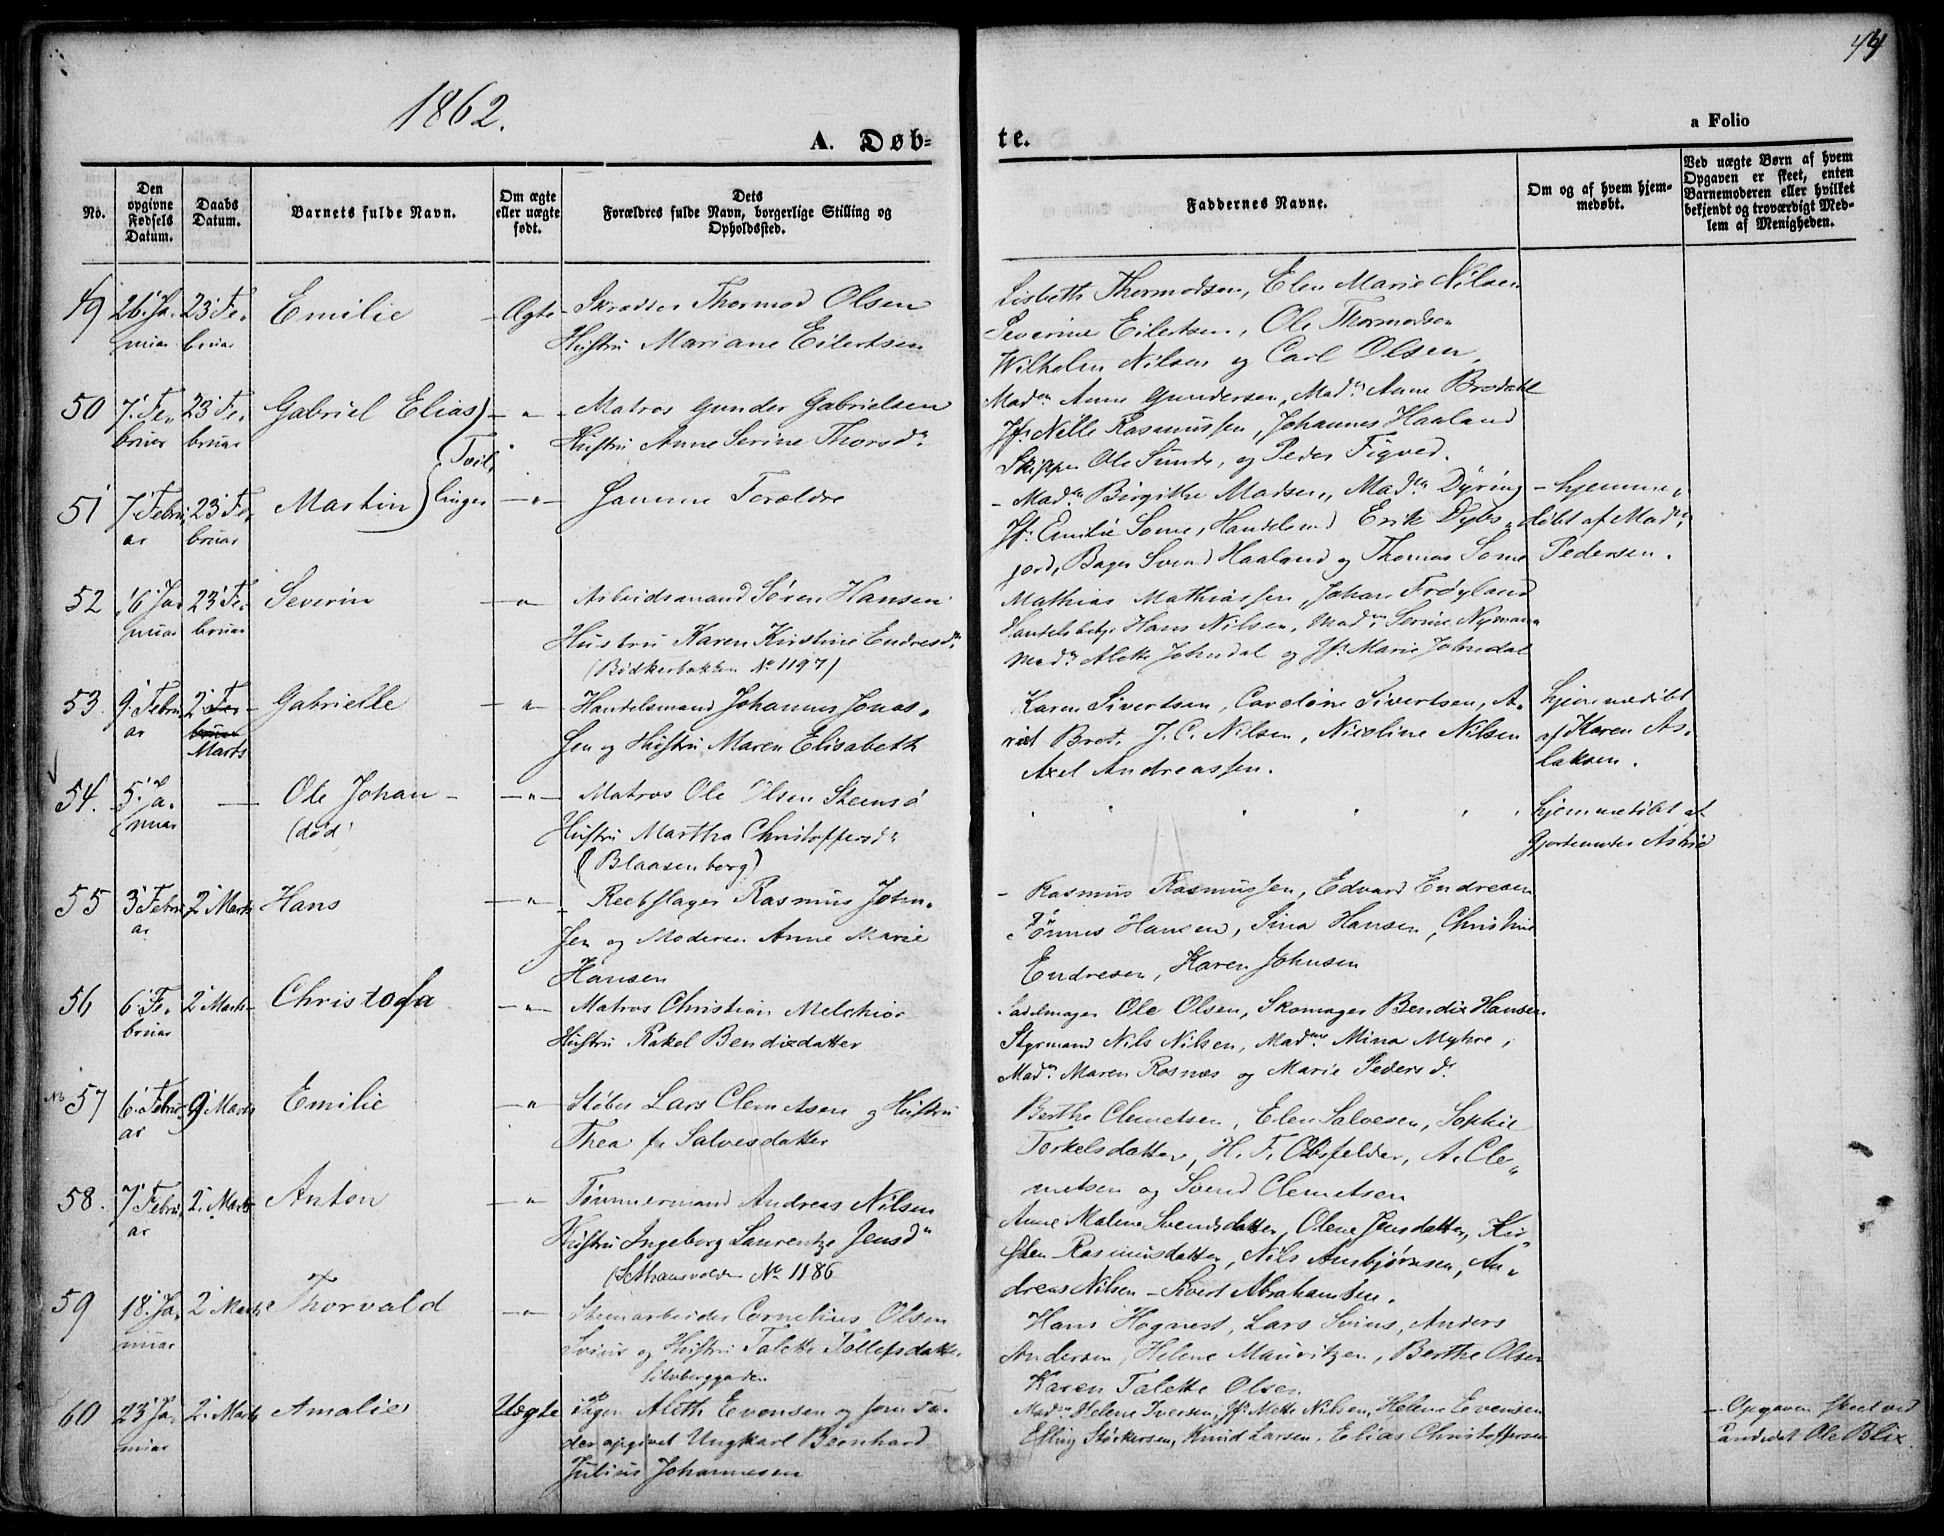 44
1862.
a Folio
A. Døb=
te.
No.
Den opgivne Fødsels Datum.
Daabs Datum.
Barnets fulde Navn.
Om ægte eller uægte født.
Dets Forældres fulde Navn, borgerlige Stilling og Opholdssted.
Faddernes Navne.
Om og af hvem hjemmedøbt.
Ved uægte Børn af hvem Opgaven er skeet, enten Barnemoderen eller hvilket bekjendt og troværdigt Medlem af Menigheden.
49 26. Ja- 23 Fe- Emilie Ægte Skrædder Thormod Olsen
nuar bruar Hustru Mariane Eilertsen
Lisbeth Thormodsen, Elen Marie Nilsen
Severine Eilertsen, Ole Thormodsen
Wilhelm Nilsen og Carl Olsen.
50 7. Fe- 23 Fe- Gabriel Elias) - " - Matros Gunder Gabrielsen
bruar bruar Hustru Anne Serine Thorsdr
(Tvil-
Madm Anne Gundersen, Madm Anne Bredahl
Jfr Nille Rasmussen, Johannes Haaland
Skipper Ole Sunde, og Peder Figved.
51 7 Febru- 23 Fe- Martin) linger - " - Samme Forældre
ar bruar
- Madm Birgithe Madsen, Madm Dyring - hjemme-
Jfr Emilie Somme, Handelsmd Erik Dybs- døbt af Madm
jord, Bager Svend Haaland og Thomas Somme Pedersen.
52 16 Ja- 23 Fe- Severin - " - Arbeidsmand Søren Hansen
nuar bruar Hustru Karen Kirstine Endresdr
(Bødkerbakken No 1197)
Mathias Mathiassen, Johan Frøyland
Handelsbetj. Hans Nilsen, Madm Serine Nymann
Madm Alette Johndal og Jfr Marie Johndal
53. 9 Febru- 2 Fe- Gabrielle - " - Handelsmand Johannes Jonas-
ar bruar Marts sen og Hustru Maren Elisabeth
Karen Sivertsen, Caroline Sivertsen, A- hjemmedøbt
vid Bret. J. C. Nilsen, Nicoline Nilsen af Karen As-
Axel Andreassen. laksen.
54. 5. Ja- — Ole Johan - - " - Matros Ole Olsen Steensø
nuar (død) Hustru Martha Christoffersdr
(Blaasenborg)
" " " " hjemmedøbt af
Gjordemoder Astrid
55 3 Febru- 2 Marts Hans - " - Reebslager Rasmus John-
ar sen og Moderen Anne Marie
Hansen
- Rasmus Rasmussen, Edvard Endresen
Tønnes Hansen, Sina Hansen, Christine
Endresen, Karen Johnsen
56 6 Fe- 2 Marts Christofa - " - Matros Christian Melchior
bruar Hustru Rakel Bendixdatter
Sadelmager Ole Olsen, Skomager Bendix Hansen
Styrmand Nils Nilsen, Madme Mina Myhre,
Madm Maren Rosnæs og Marie Pedersd.
NB 57 6. Febru- 9 Marts Emilie - " - Støber Lars Clemetsen og Hustru
ar Thea f. Salvesdatter
Berthe Clemetsen, Elen Salvesen, Sophie
Torkelsdatter, H. F. Obsfelder, A. Cle-
metsen og Svend Clemetsen
58. 7 Febru- 2. Marts Anton - " - Timmermand Andreas Nilsen
ar Hustru Ingeborg Laurentze Jensdr
(St Hansvolden No 1186
Anne Malene Svendsdatter, Olene Jensdatter, Kir-
sten Rasmusdatter, Nils Ansbjørnsen, An-
dreas Nilsen - Sivert Abrahamsen.
59 18. Ja- 2 Marts Thorvald - " - Steenarbeider Cornelius Olsen
nuar Sviur og Hustru Talette Tollefsdatter
Hans Hognest, Lars Svius, Anders
Andersen, Helene Mauritzen, Berthe Olsen
Karen Talette Olsen
60 23 Ja- 2. Marts Amalie Uægte Pigen Aleth Evensen og som Fa-
nuar der opgivet Ungkarl Bernhard
Julius Johannesen
Madm Helene Iversen, Jfr Mette Nilsen, Helene Evensen
Efling Størkersen, Knud Larsen, Elias Christoffersen
- Opgaven skeet ved
Candidat Ole Blix.